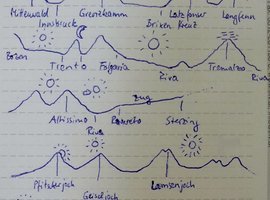 Mittenwald Grenzkamm Latzfonser Langkofel
Innsbruck Brixen Kreuz
Bozen Trento Folgaria Riva Tremalzo Riva
Altissimo Rovereto Zug Sterzing
Riva
Pfitscherjoch Lamsenjoch
Geiseljoch